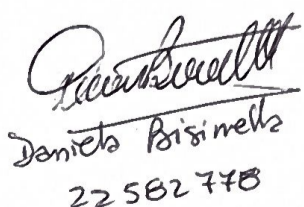 Daniela Bisinella
22582778